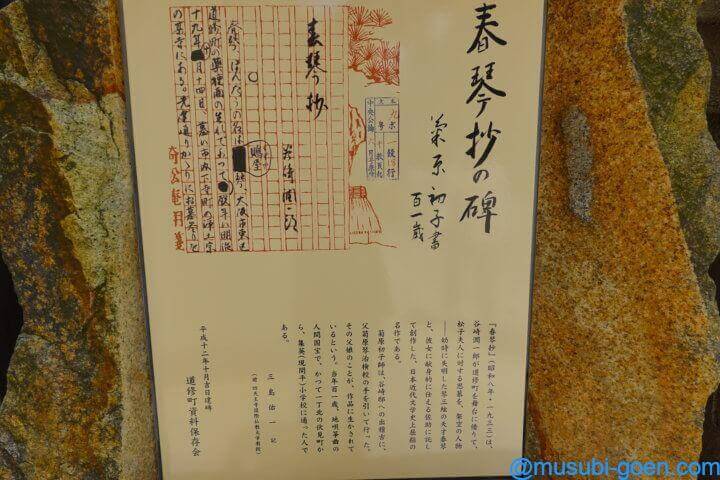 春琴抄の碑
菊原初子書
百一歳
春琴抄
谷崎潤一郎
春琴、ほんたうの名は
鵙屋
琴、大阪市東区
道修町の薬種商の生れであつて歿年は明治
十九年十月十四日、墓は市内下寺町の浄土宗
の某寺にある。先達通りかゝりにお墓参りを
『春琴抄』(昭和八年・一九三三)は、
谷崎潤一郎が道修町を舞台に借りて、
松子夫人に対する思慕を、架空の人物
――幼時に失明した琴三絃の天才春琴
と、彼女に献身的に仕える佐助に託し
て創作した、日本近代文学史上屈指の
名作である。
菊原初子師は、谷崎邸への出稽古に、
父菊原琴治検校の手を引いて行った。
その父娘のことが、作品に生かされて
いるという。当年百一歳、地唄箏曲の
人間国宝で、かつて一丁北の伏見町か
ら、集英(現開平)小学校に通った人で
ある。
三島佑一 記
平成十二年十月吉日建碑
道修町資料保存会
@musubi-goen.com